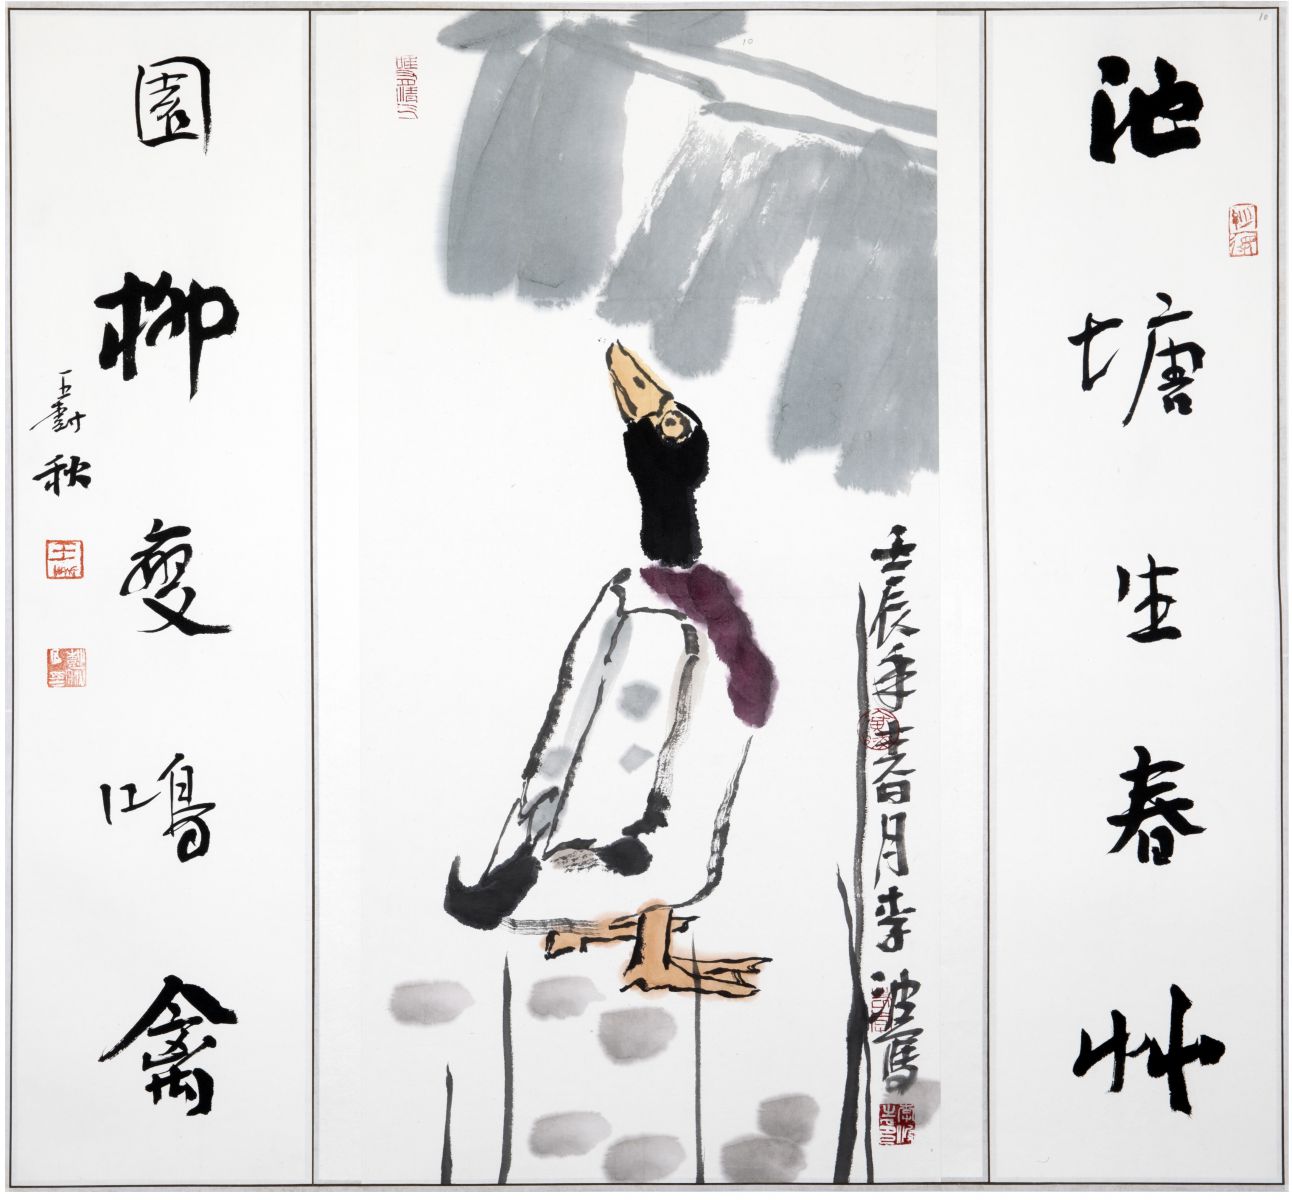 池塘生春艸
壬辰年春月李波寫
園柳變鳴禽
王尌秋